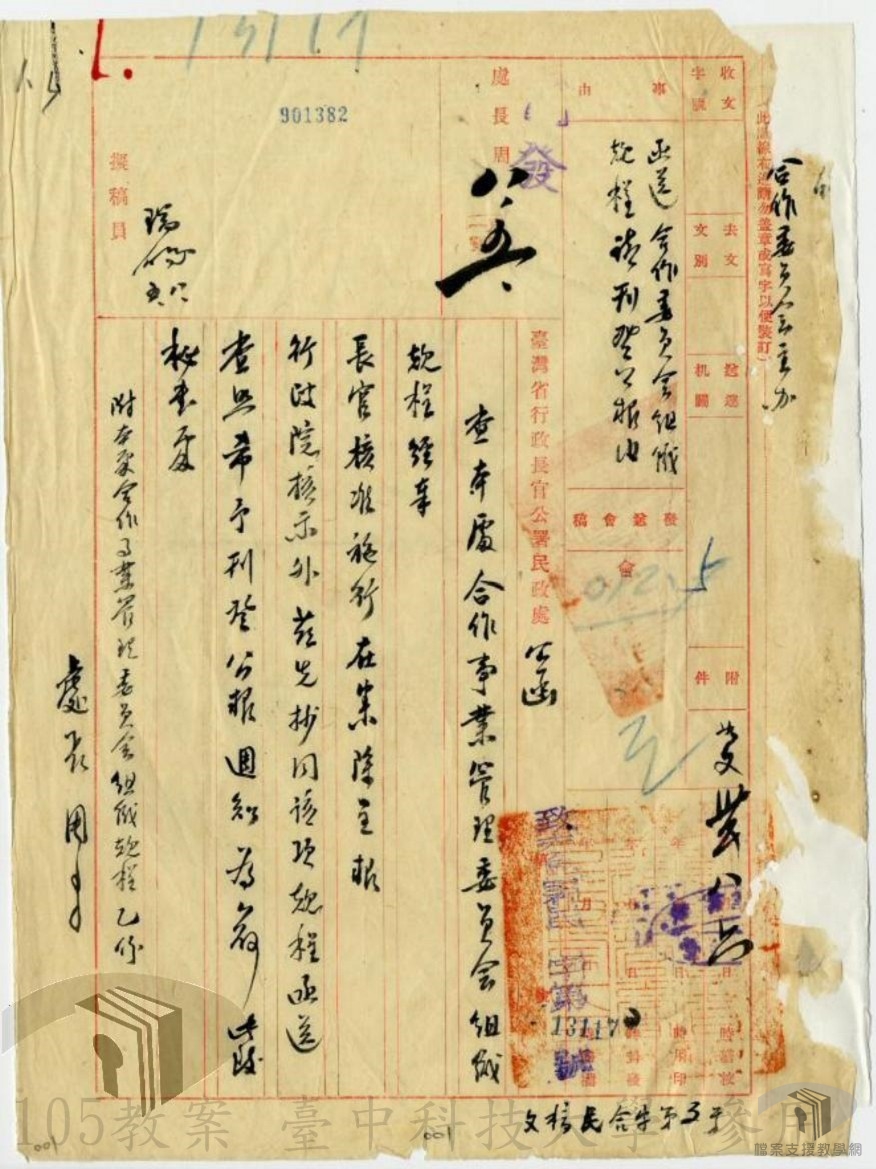 合作委員会主办
(此處線右邊請勿蓋章或寫字以便裝訂)
收文
字號
去文
文別
送達
机關
附件
事由
函送合作委員会組織
規程請刊登公報由
發送會稿
會
處長周
發
八、五、
901382
撰稿員
臺灣省行政長官公署民政處
公函
查本處合作事業管理委員会組織
規程經奉
長官核准施行在案除呈報
行政院核示外茲先抄同該項規程函送
查照希予刊登公報週知為荷此致
秘書處
附本處合作事業管理委員会組織規程乙份
處長周
13117
13117
號
001
001
105教案 臺中科技大學
檔案支援教學網